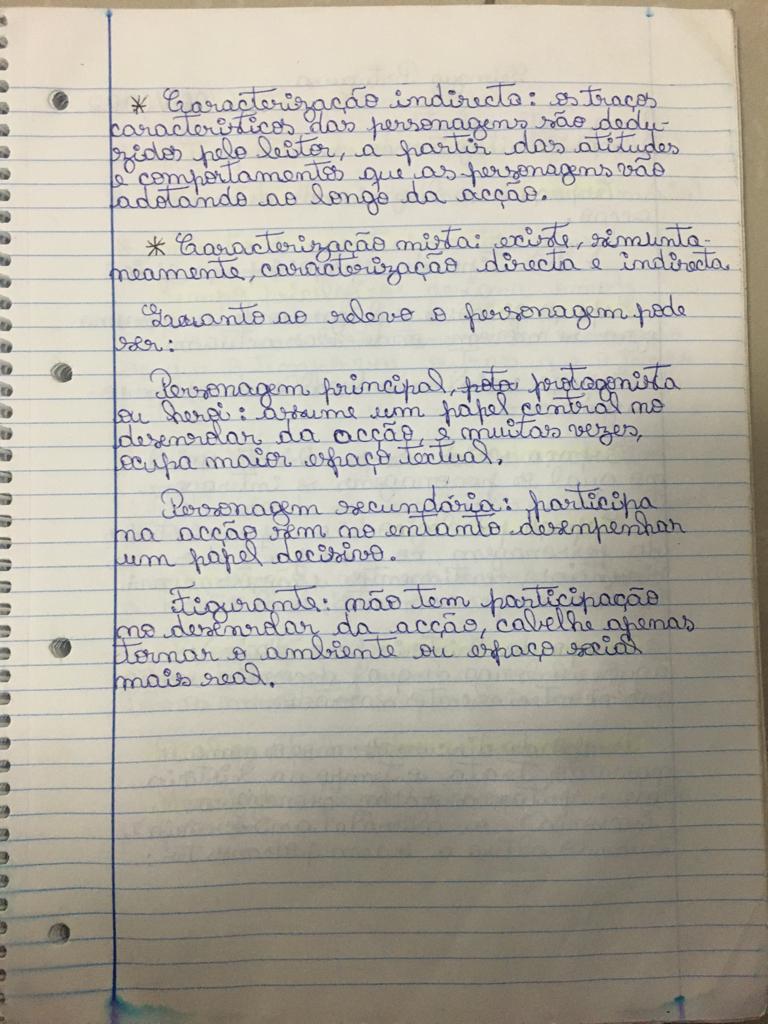 * Caracterização indirecta: os traços
característicos das personagens são dedu-
zidos pelo leitor, a partir das atitudes
e comportamentos que as personagens vão
adotando ao longo da acção.
* Caracterização mista: existe, simunta-
neamente, caracterização directa e indirecta
Quanto ao relevo o personagem pode
ser:
Personagem principal, protagonista
ou heroi: assume um papel central no
desenrolar da acção, e muitas vezes,
ocupa maior espaço textual.
Personagem secundária: participa
na acção sem no entanto desempenhar
um papel decisivo.
Figurante: não tem participação
no desenrolar da acção, cabelhe apenas
tornar o ambiente ou espaço social
mais real.